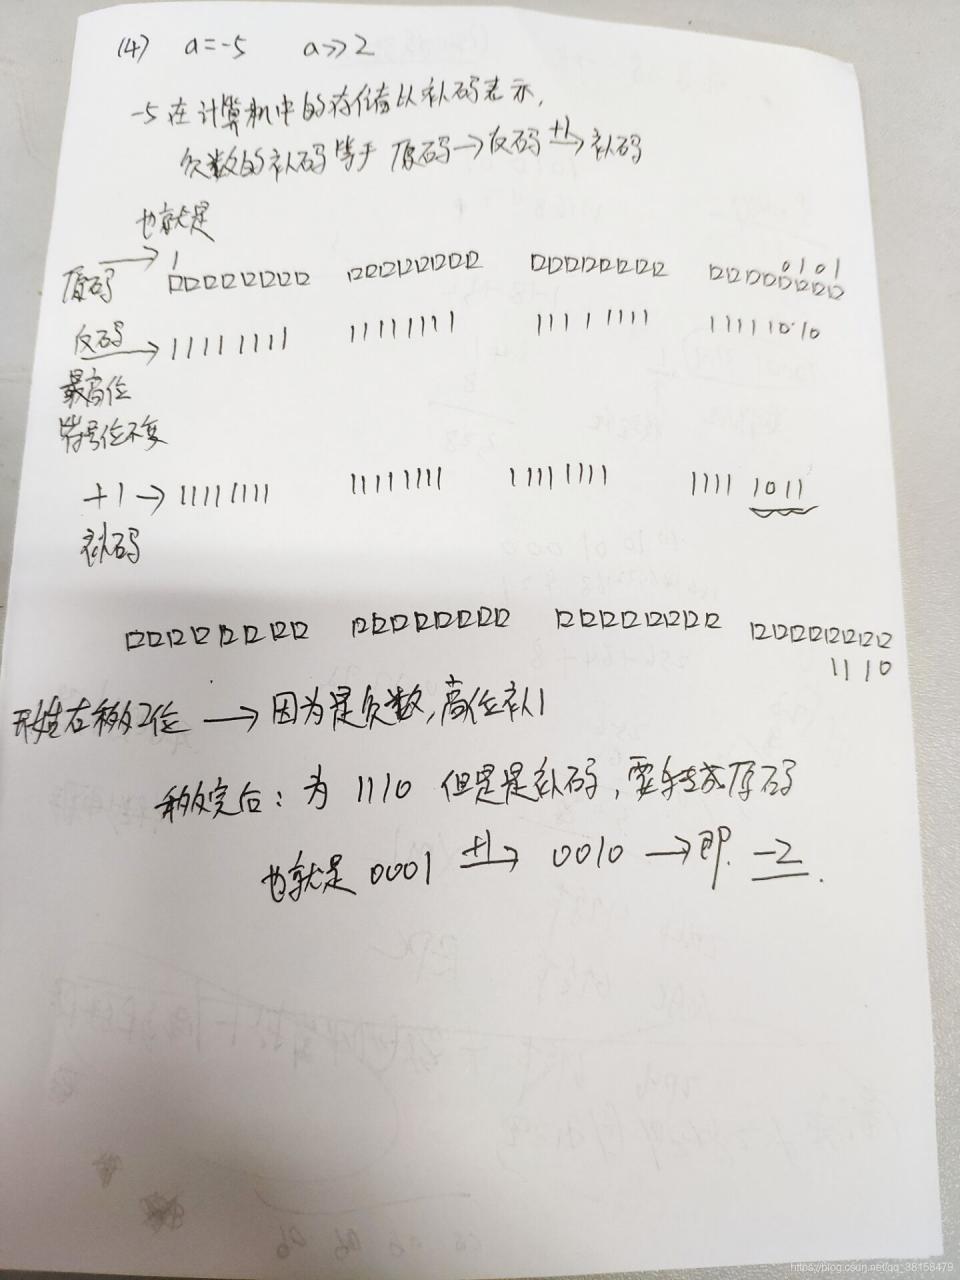 (4) a=-5 a>>2
-5在计算机中的存储以补码表示,
负数的补码等于 原码→反码 +1→ 补码
也就是
原码 → 1 0101
反码 → 11111111 11111111 11111111 11111010
最高位
符号位不变
+1 → 11111111 11111111 11111111 1111 1011
补码
1110
开始右移2位 → 因为是负数,高位补1
移完后: 为 1110 但是是补码,要转成原码
也就是 0001 +1→ 0010 → 即 -2.
https://blog.csdn.net/qq_38158479